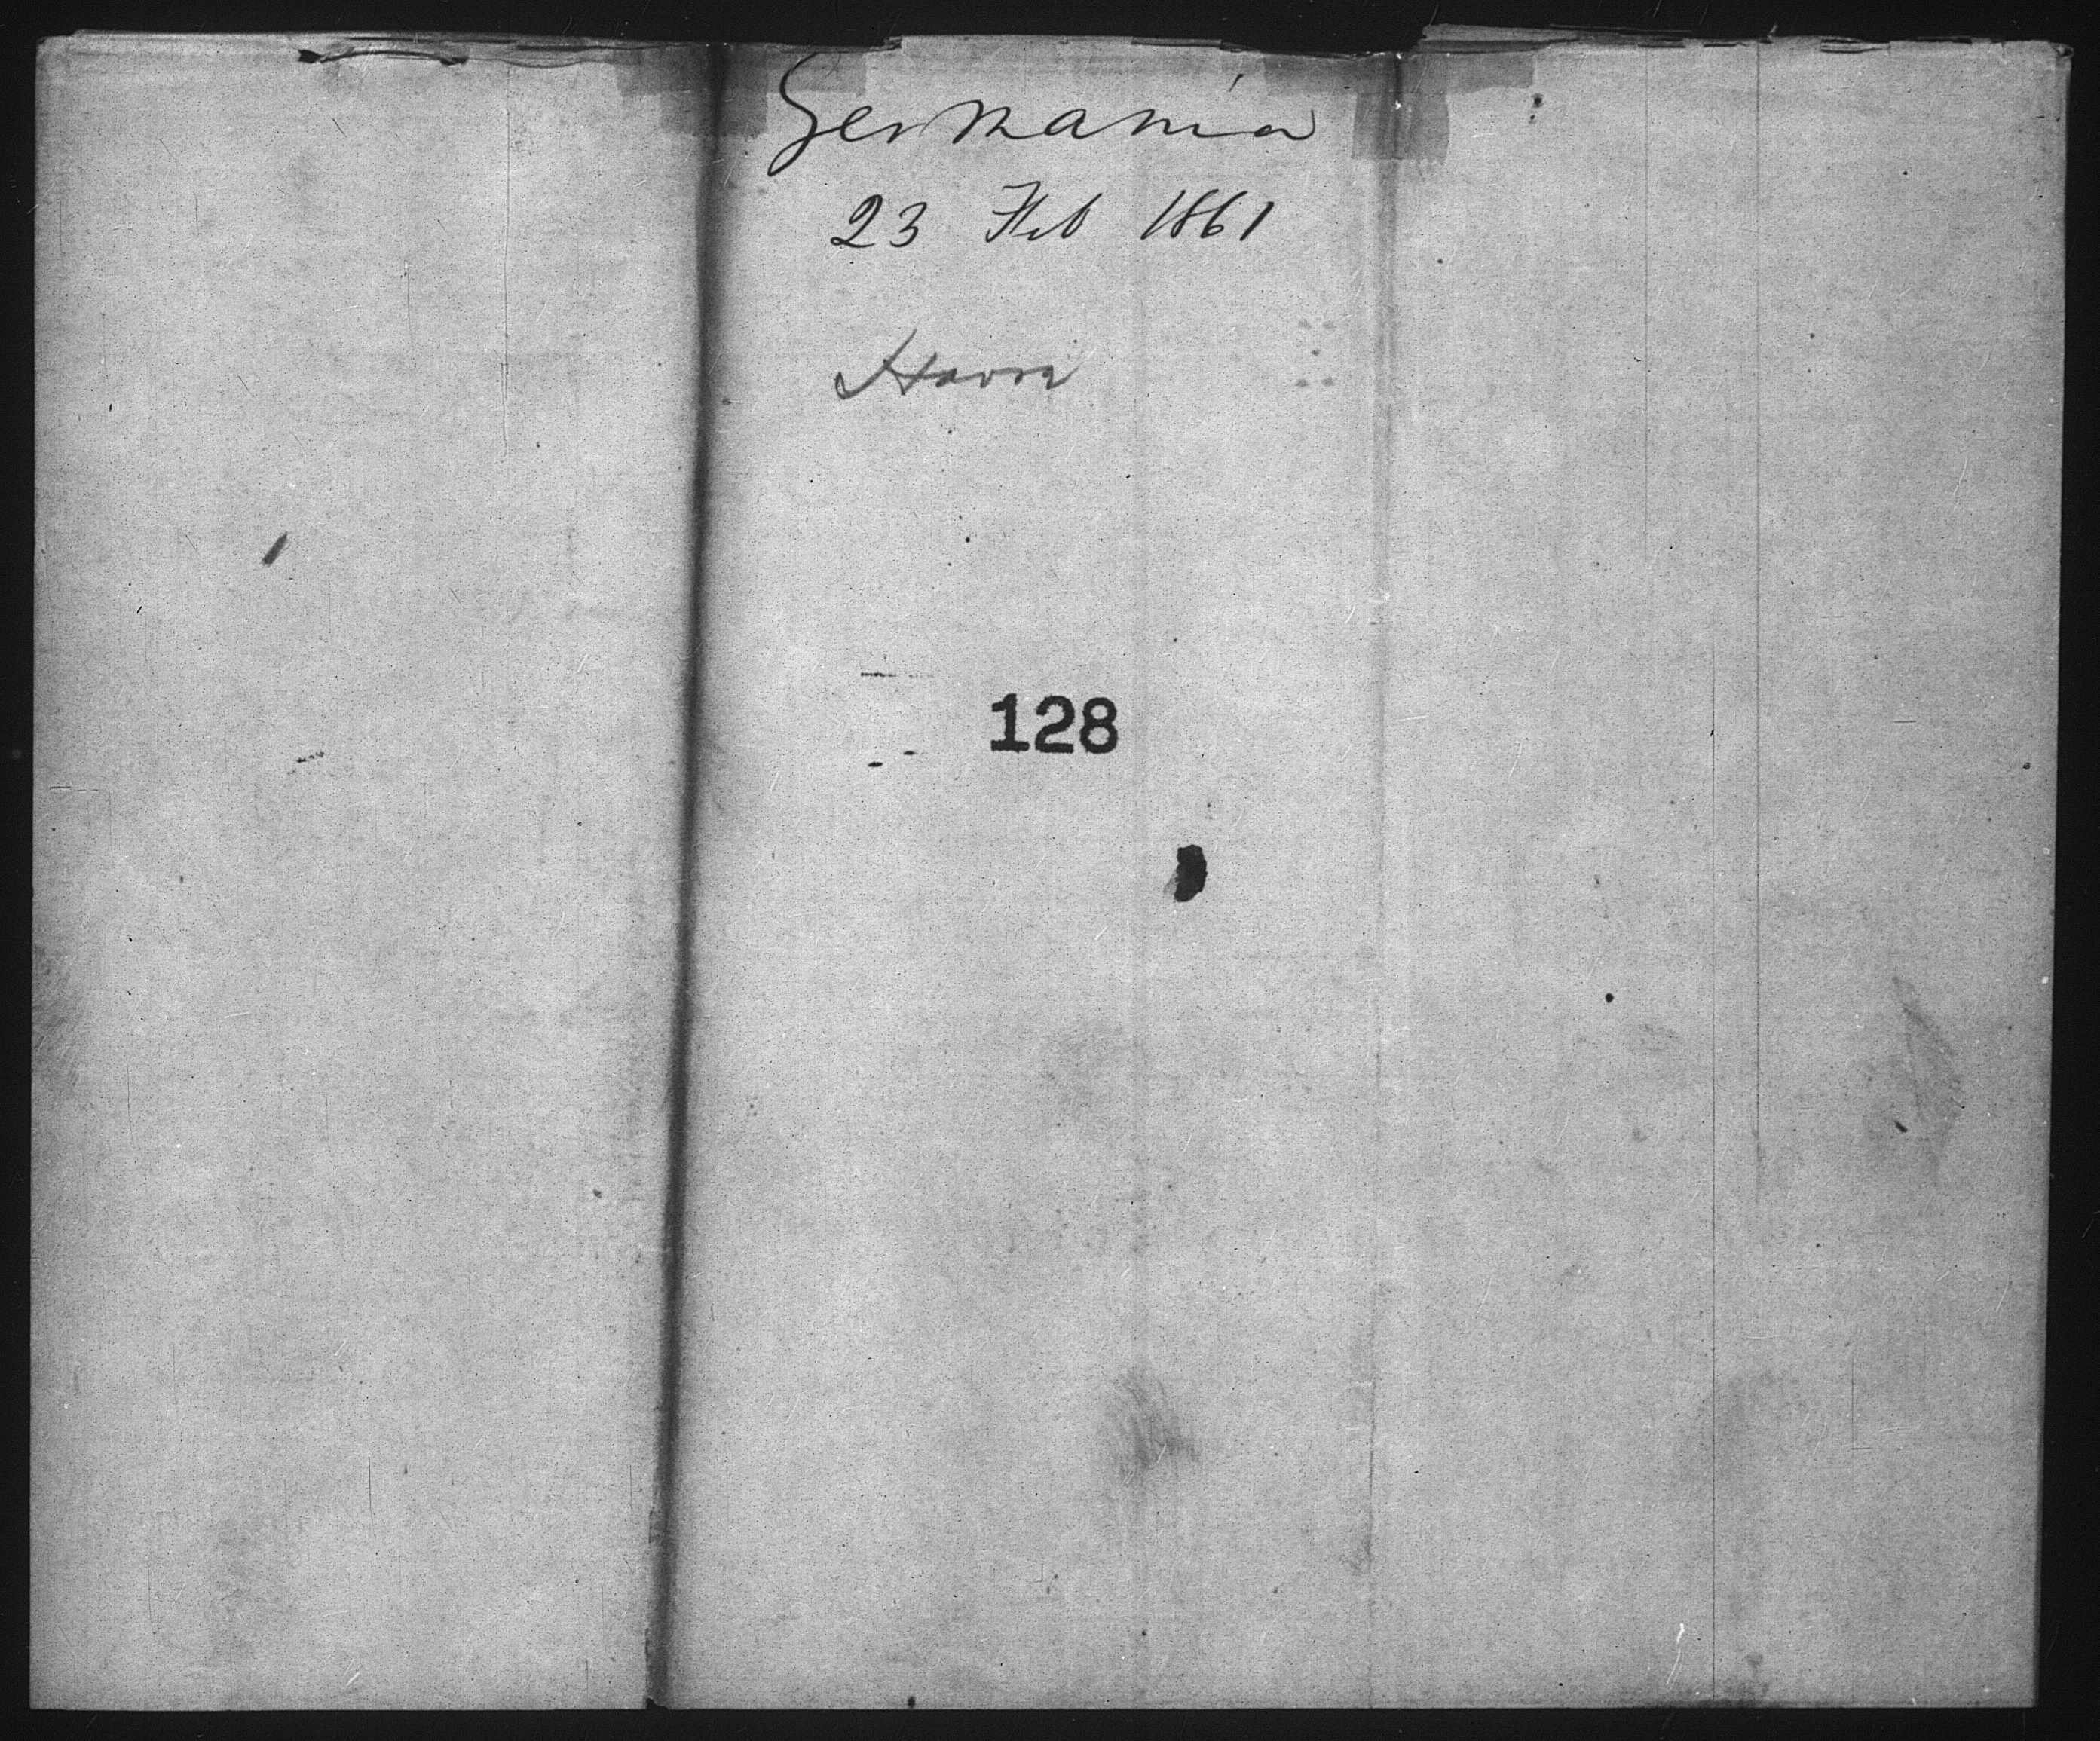 Germania
23 Feb 1861
Havre
128